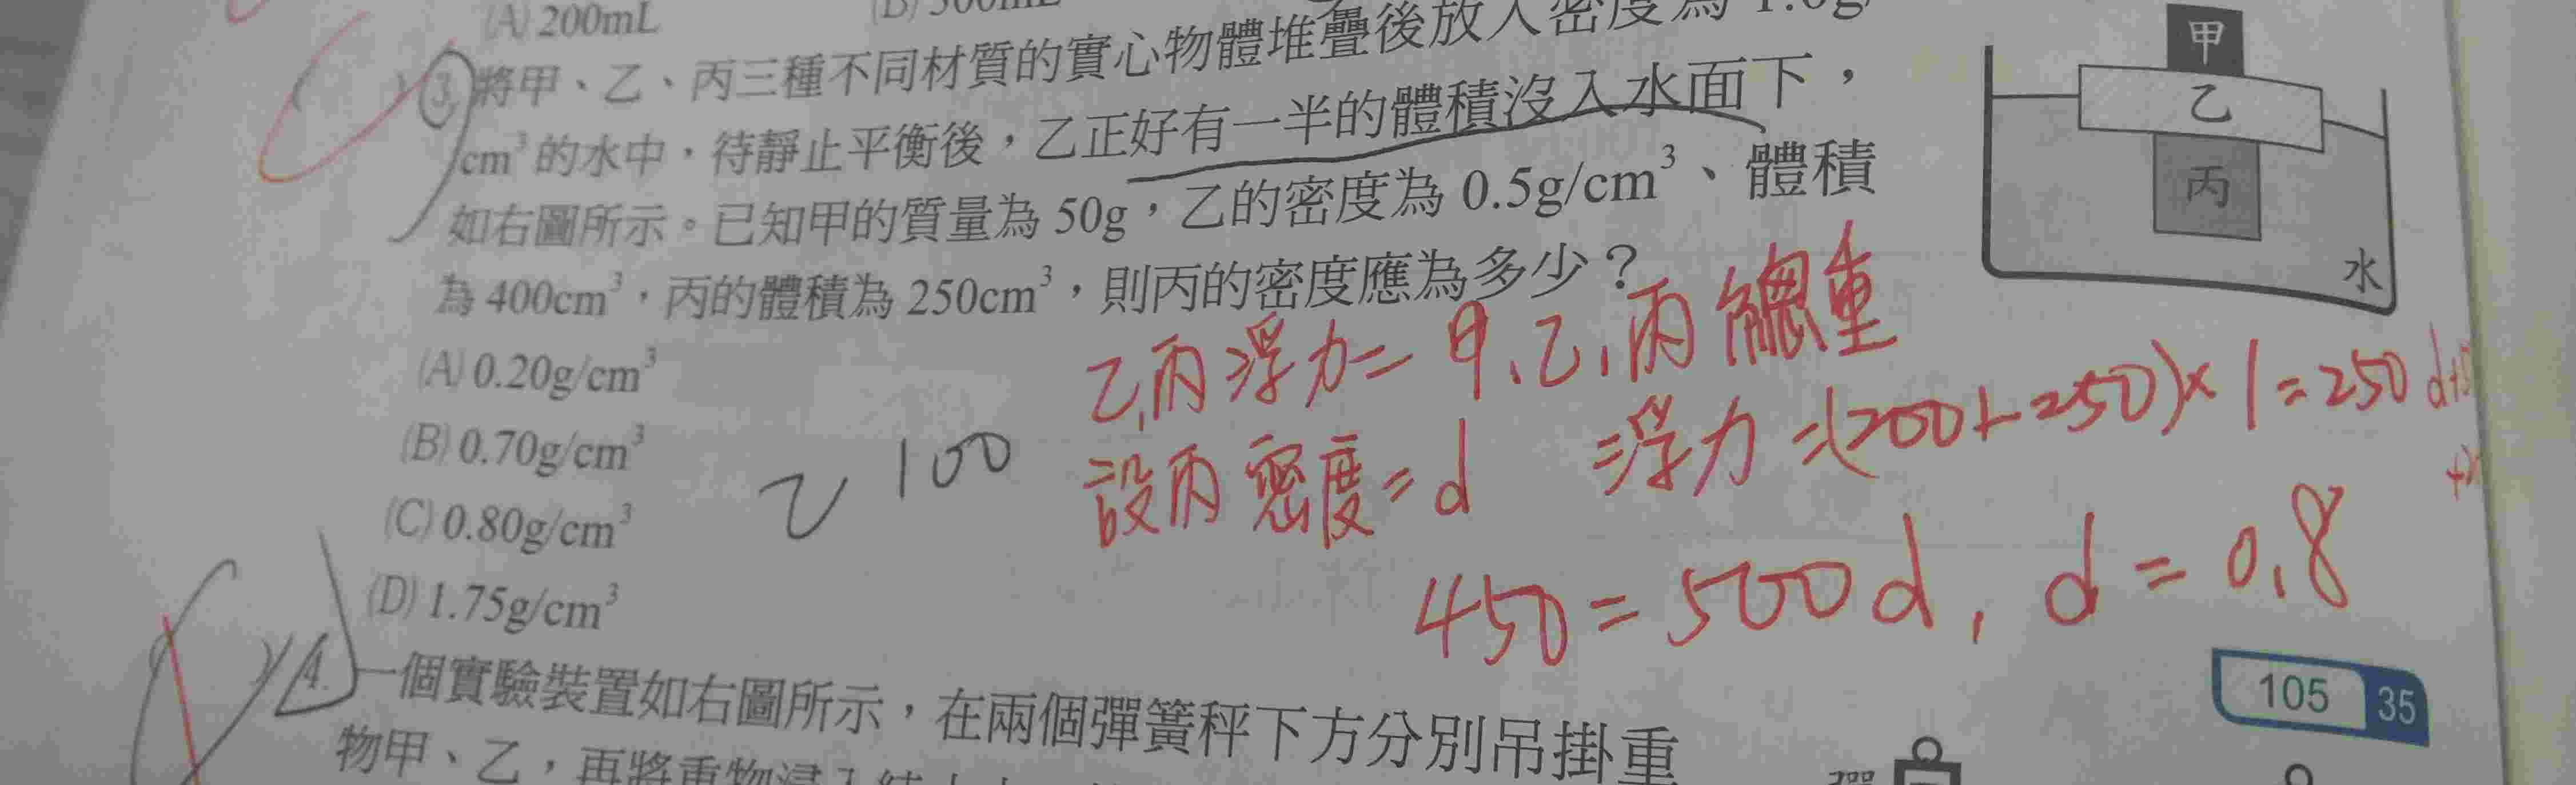 (A) 200mL
3. 將甲、乙、丙三種不同材質的實心物體堆疊後放入密度為 1.0g/
cm³ 的水中，待靜止平衡後，乙正好有一半的體積沒入水面下，
如右圖所示。已知甲的質量為 50g，乙的密度為 0.5g/cm³、體積
為 400cm³，丙的體積為 250cm³，則丙的密度應為多少？
甲
乙
丙
水
乙,丙浮力=甲、乙、丙總重
(A) 0.20g/cm³
(B) 0.70g/cm³
(C) 0.80g/cm³
(D) 1.75g/cm³
乙 100
設丙密度=d
浮力=(200+250)×1=250d
450=500d, d=0.8
4. 一個實驗裝置如右圖所示，在兩個彈簧秤下方分別吊掛重
物甲、乙，再將重物浸入
105 35